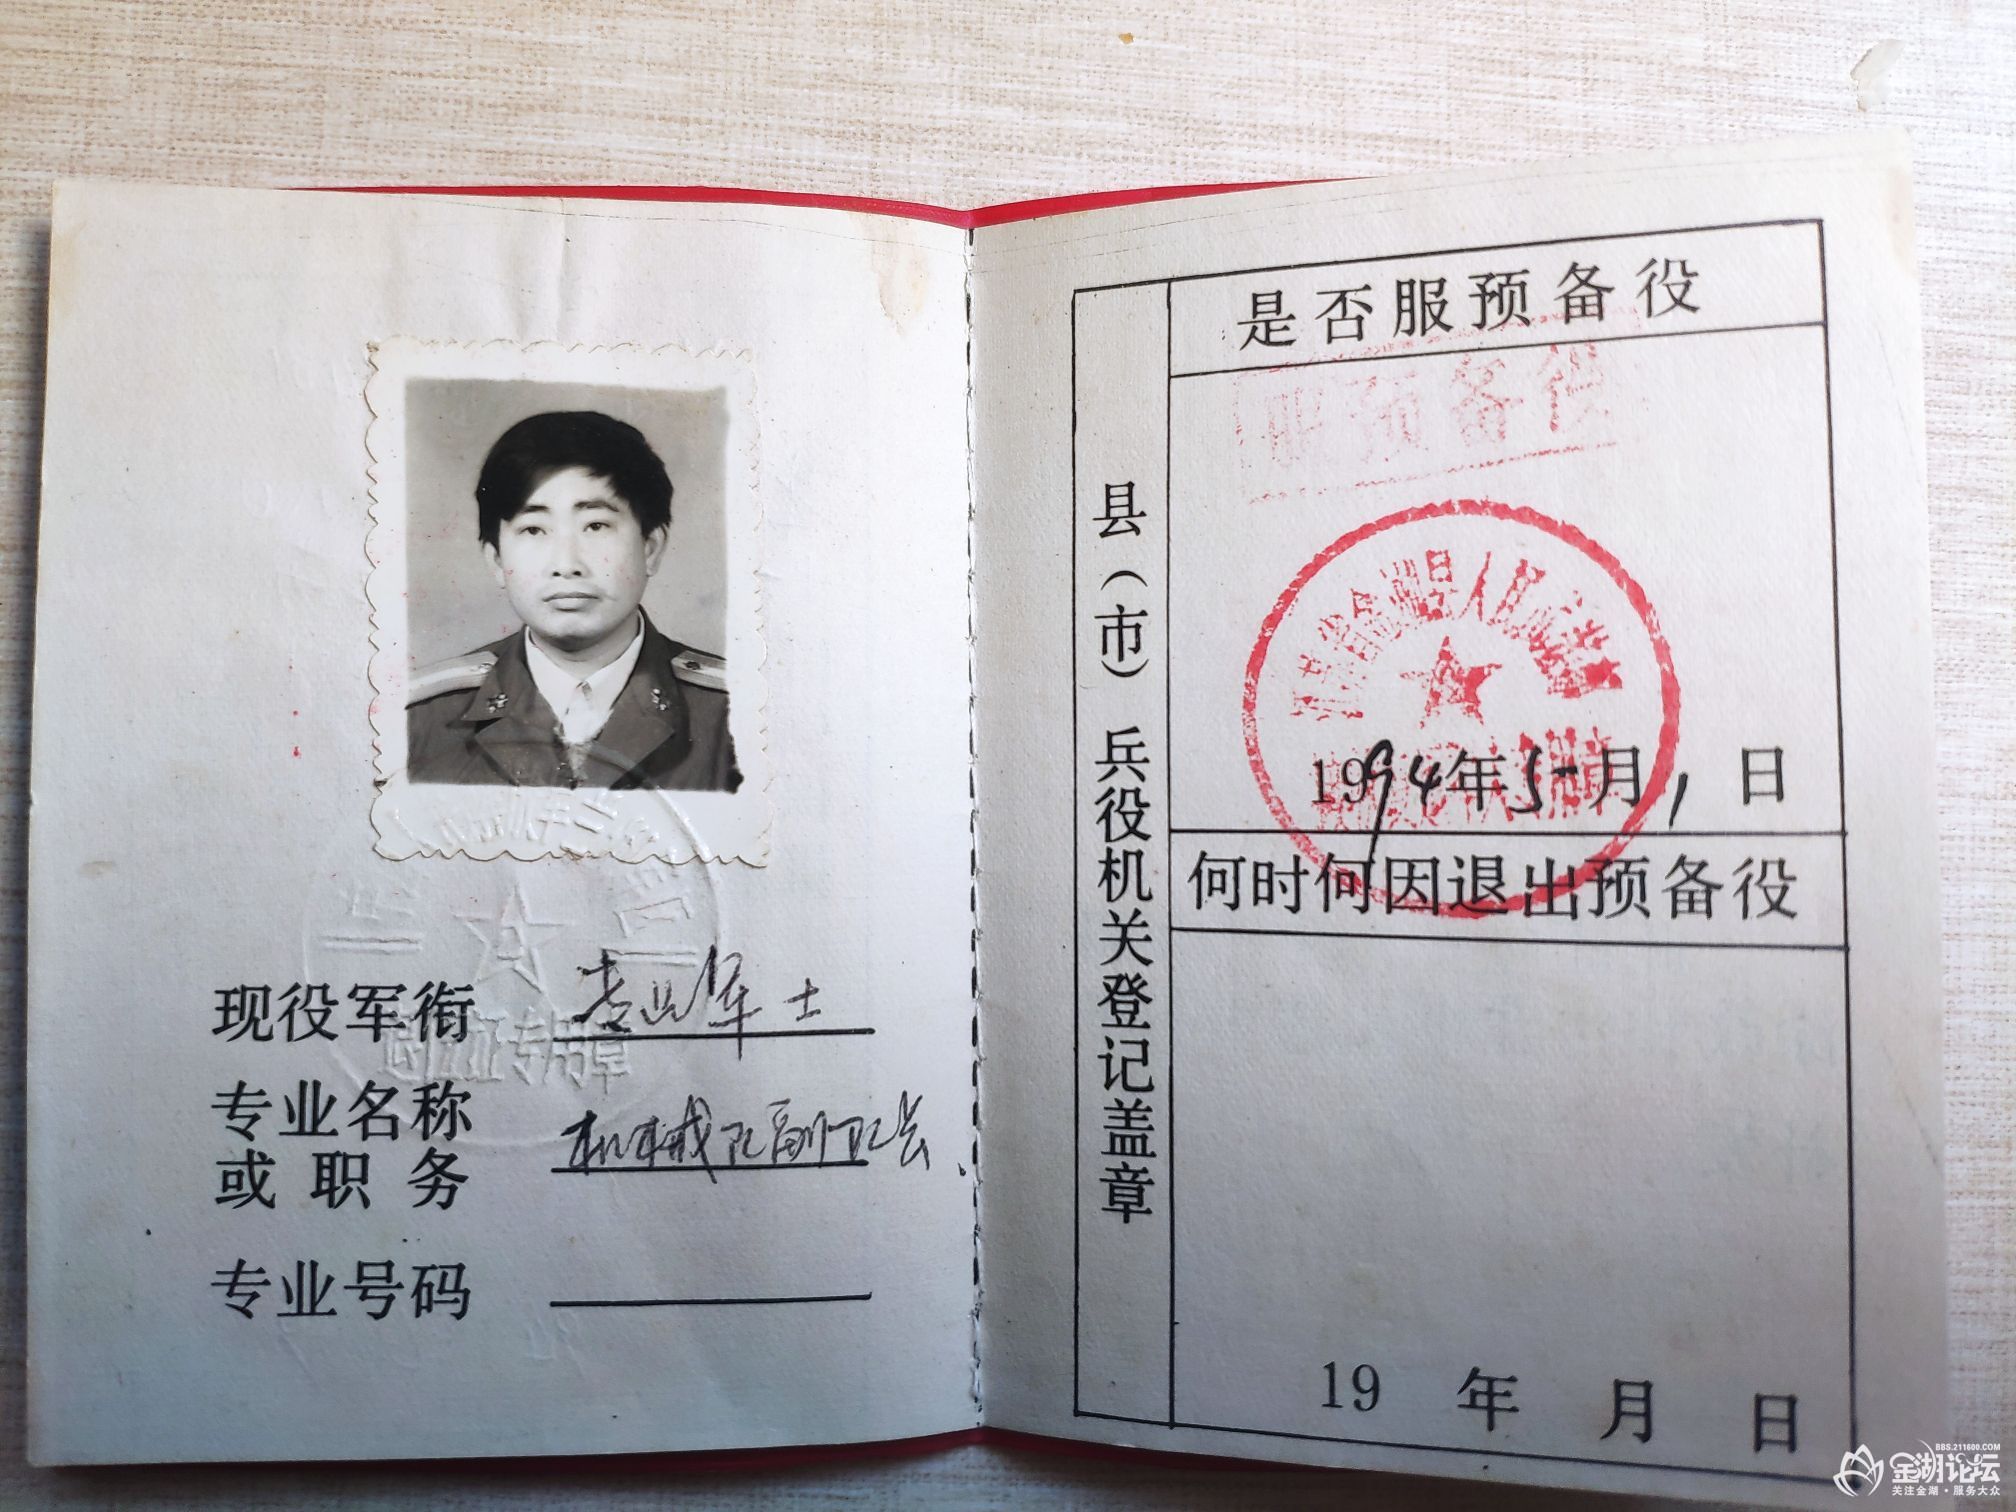 现役军衔 专业军士
专业名称
或职务 机械队副队长
专业号码
退伍证专用章
县（市）兵役机关登记盖章
是否服预备役
服预备役
江苏省金湖县人民武装部
1994年5月1日
何时何因退出预备役
19 年 月 日
BBS.211600.COM
金湖论坛
关注金湖·服务大众